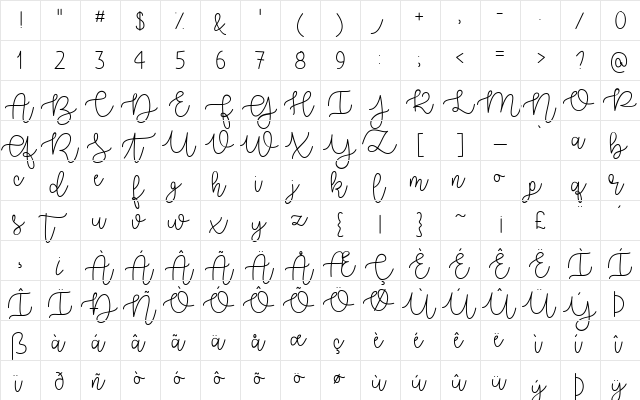 ! " # $ % & ' ( ) , + , - . / 0
1 2 3 4 5 6 7 8 9 : ; < = > ? @
A B C D E F G H I J K L M N O P
Q R S T U V W X Y Z [ ] _ ` a b
c d e f g h i j k l m n o p q r
s t u v w x y z { | } ~ ¡ £ ¨
¸ i À Á Â Ã Ä Å Æ Ç È É Ê Ë Ì Í
Î Ï Ð Ñ Ò Ó Ô Õ Ö Ø Ù Ú Û Ü Ý Þ
ß à á â ã ä å æ ç è é ê ë ì í î
ï ð ñ ò ó ô õ ö ø ù ú û ü ý þ ÿ